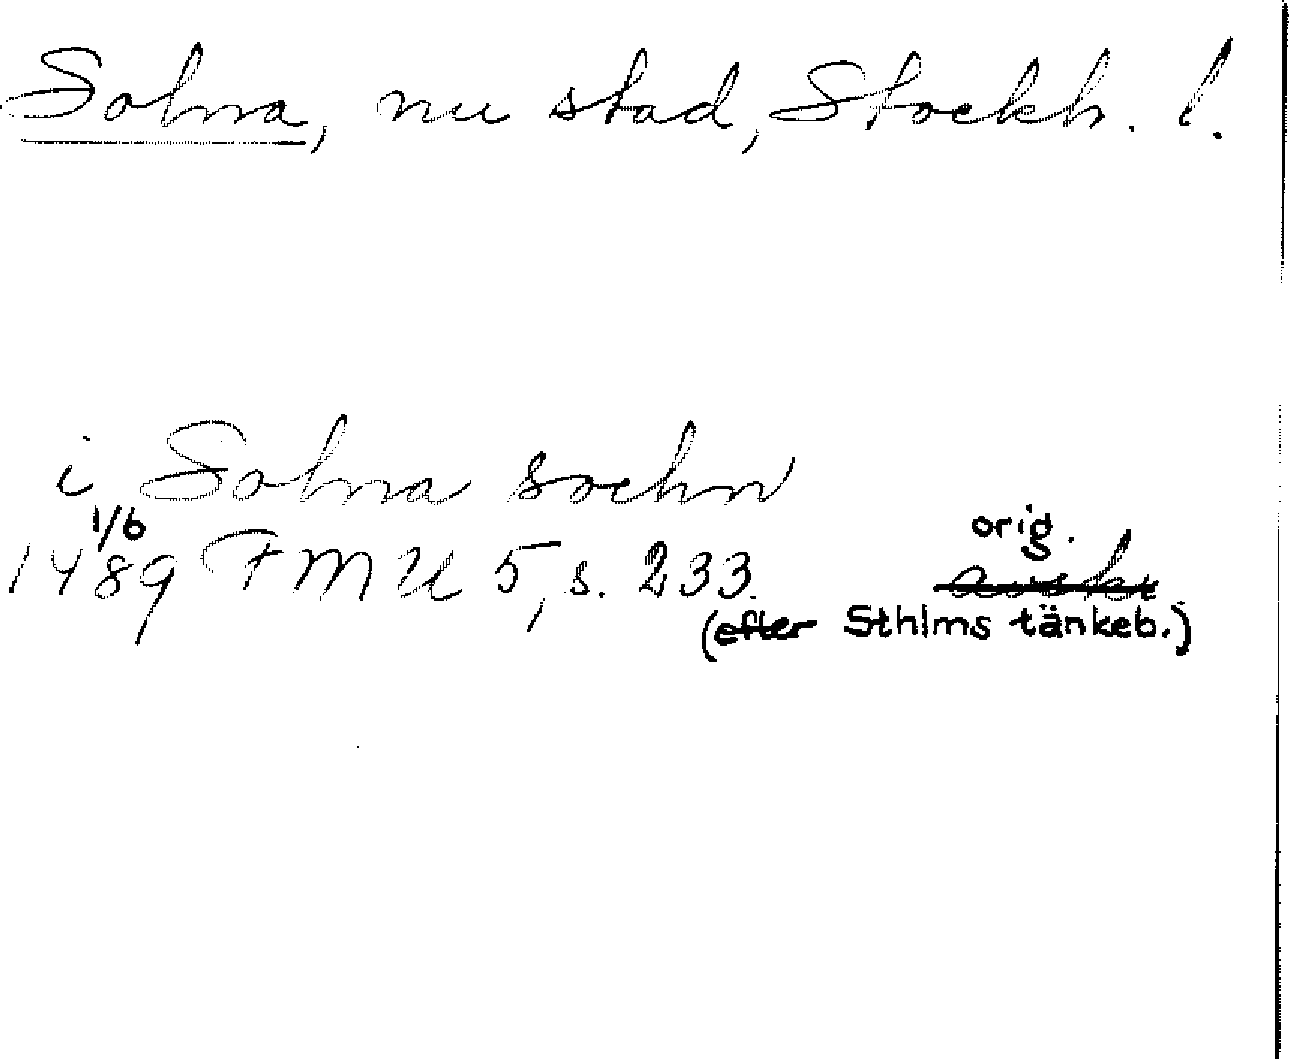 Solna, nu stad, Stockh. l.
i Solna sochn
1/6
orig.
1489 FMU 5, s. 233.
(efter Sthlms tänkeb.)